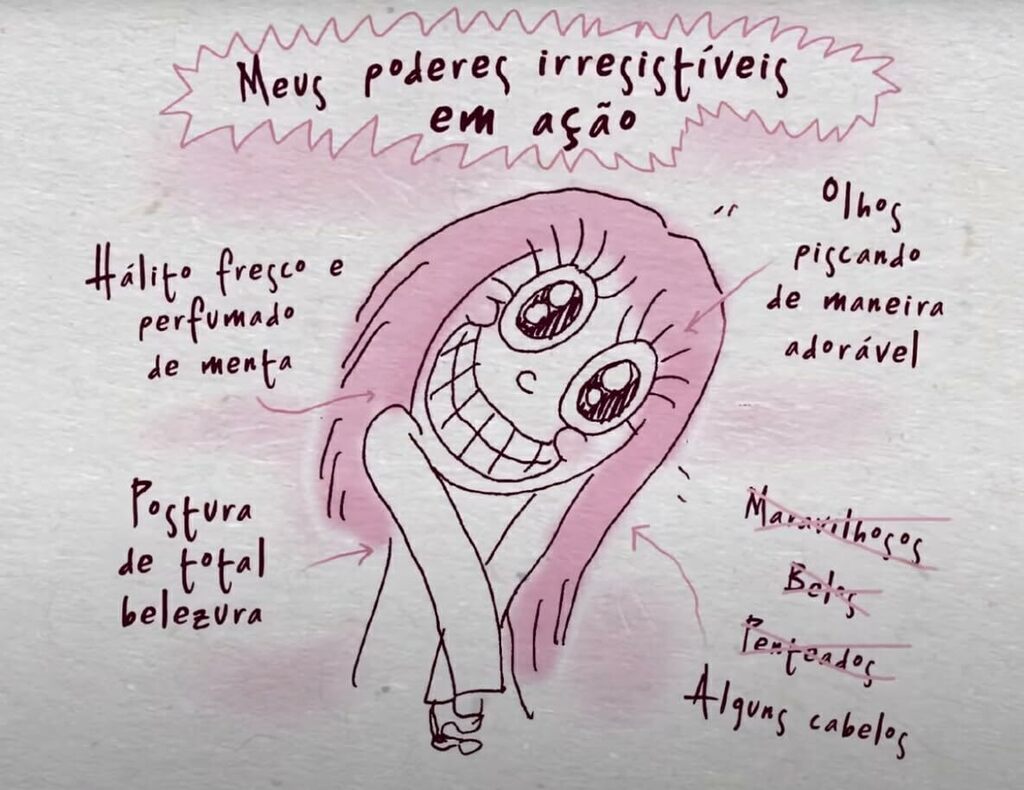 Meus poderes irresistíveis
em ação
Hálito fresco e
perfumado
de menta
Olhos
piscando
de maneira
adorável
Postura
de total
belezura
Maravilhosos
Belos
Penteados
Alguns cabelos